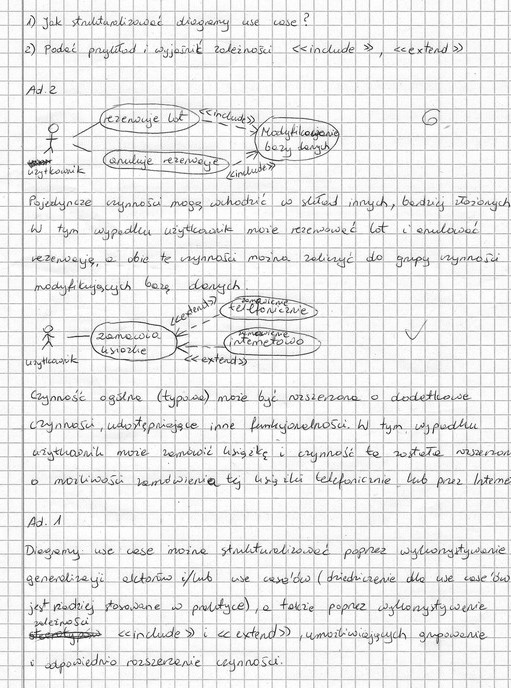 1) Jak strukturalizować diagramy use case?
2) Podać przykład i wyjaśnić zależności <<include>>, <<extend>>
Ad. 2
rezerwuje lot
<<include>>
Modyfikowanie
bazy danych
6
anuluje rezerwację
<<include>>
użytkownik
Pojedyncze czynności mogą wchodzić w skład innych, bardziej złożonych
W tym wypadku użytkownik może rezerwować lot i anulować
rezerwację, a obie te czynności można zaliczyć do grupy czynności
modyfikujących bazę danych.
<<extend>>
zamówienie
telefonicznie
zamawia
książkę
zamówienie
internetowo
użytkownik
<<extend>>
Czynność ogólna (typowa) może być rozszerzona o dodatkowe
czynności, udostępniające inne funkcjonalności. W tym wypadku
użytkownik może zamówić książkę i czynność ta została rozszerzon
o możliwości zamówienia tej książki telefonicznie lub przez Interne
Ad. 1
Diagramy use case można strukturalizować poprzez wykorzystywanie
generalizacji aktorów i/lub use case'ów (dziedziczenie dla use case'ów
jest rzadziej stosowane w praktyce), a także poprzez wykorzystywanie
zależności
<<include>> i <<extend>>, umożliwiających grupowanie
i odpowiednio rozszerzanie czynności.